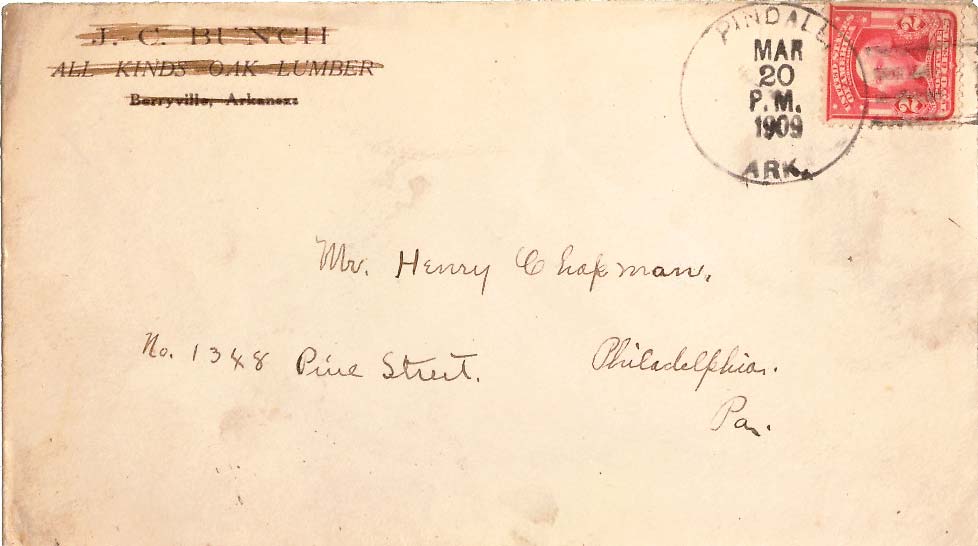 J. C. BUNCH
ALL KINDS OAK LUMBER
Berryville, Arkansas
PINDALL
MAR
20
P.M.
1909
ARK.
Mr. Henry Chapman,
No. 1348 Pine Street.
Philadelphia.
Pa.